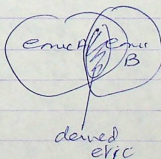 emic A emic
B
derived
etic